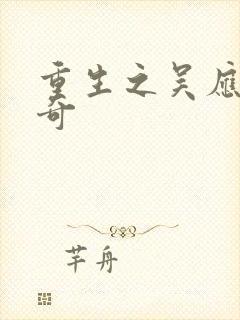 重生之吴应
奇
芊舟